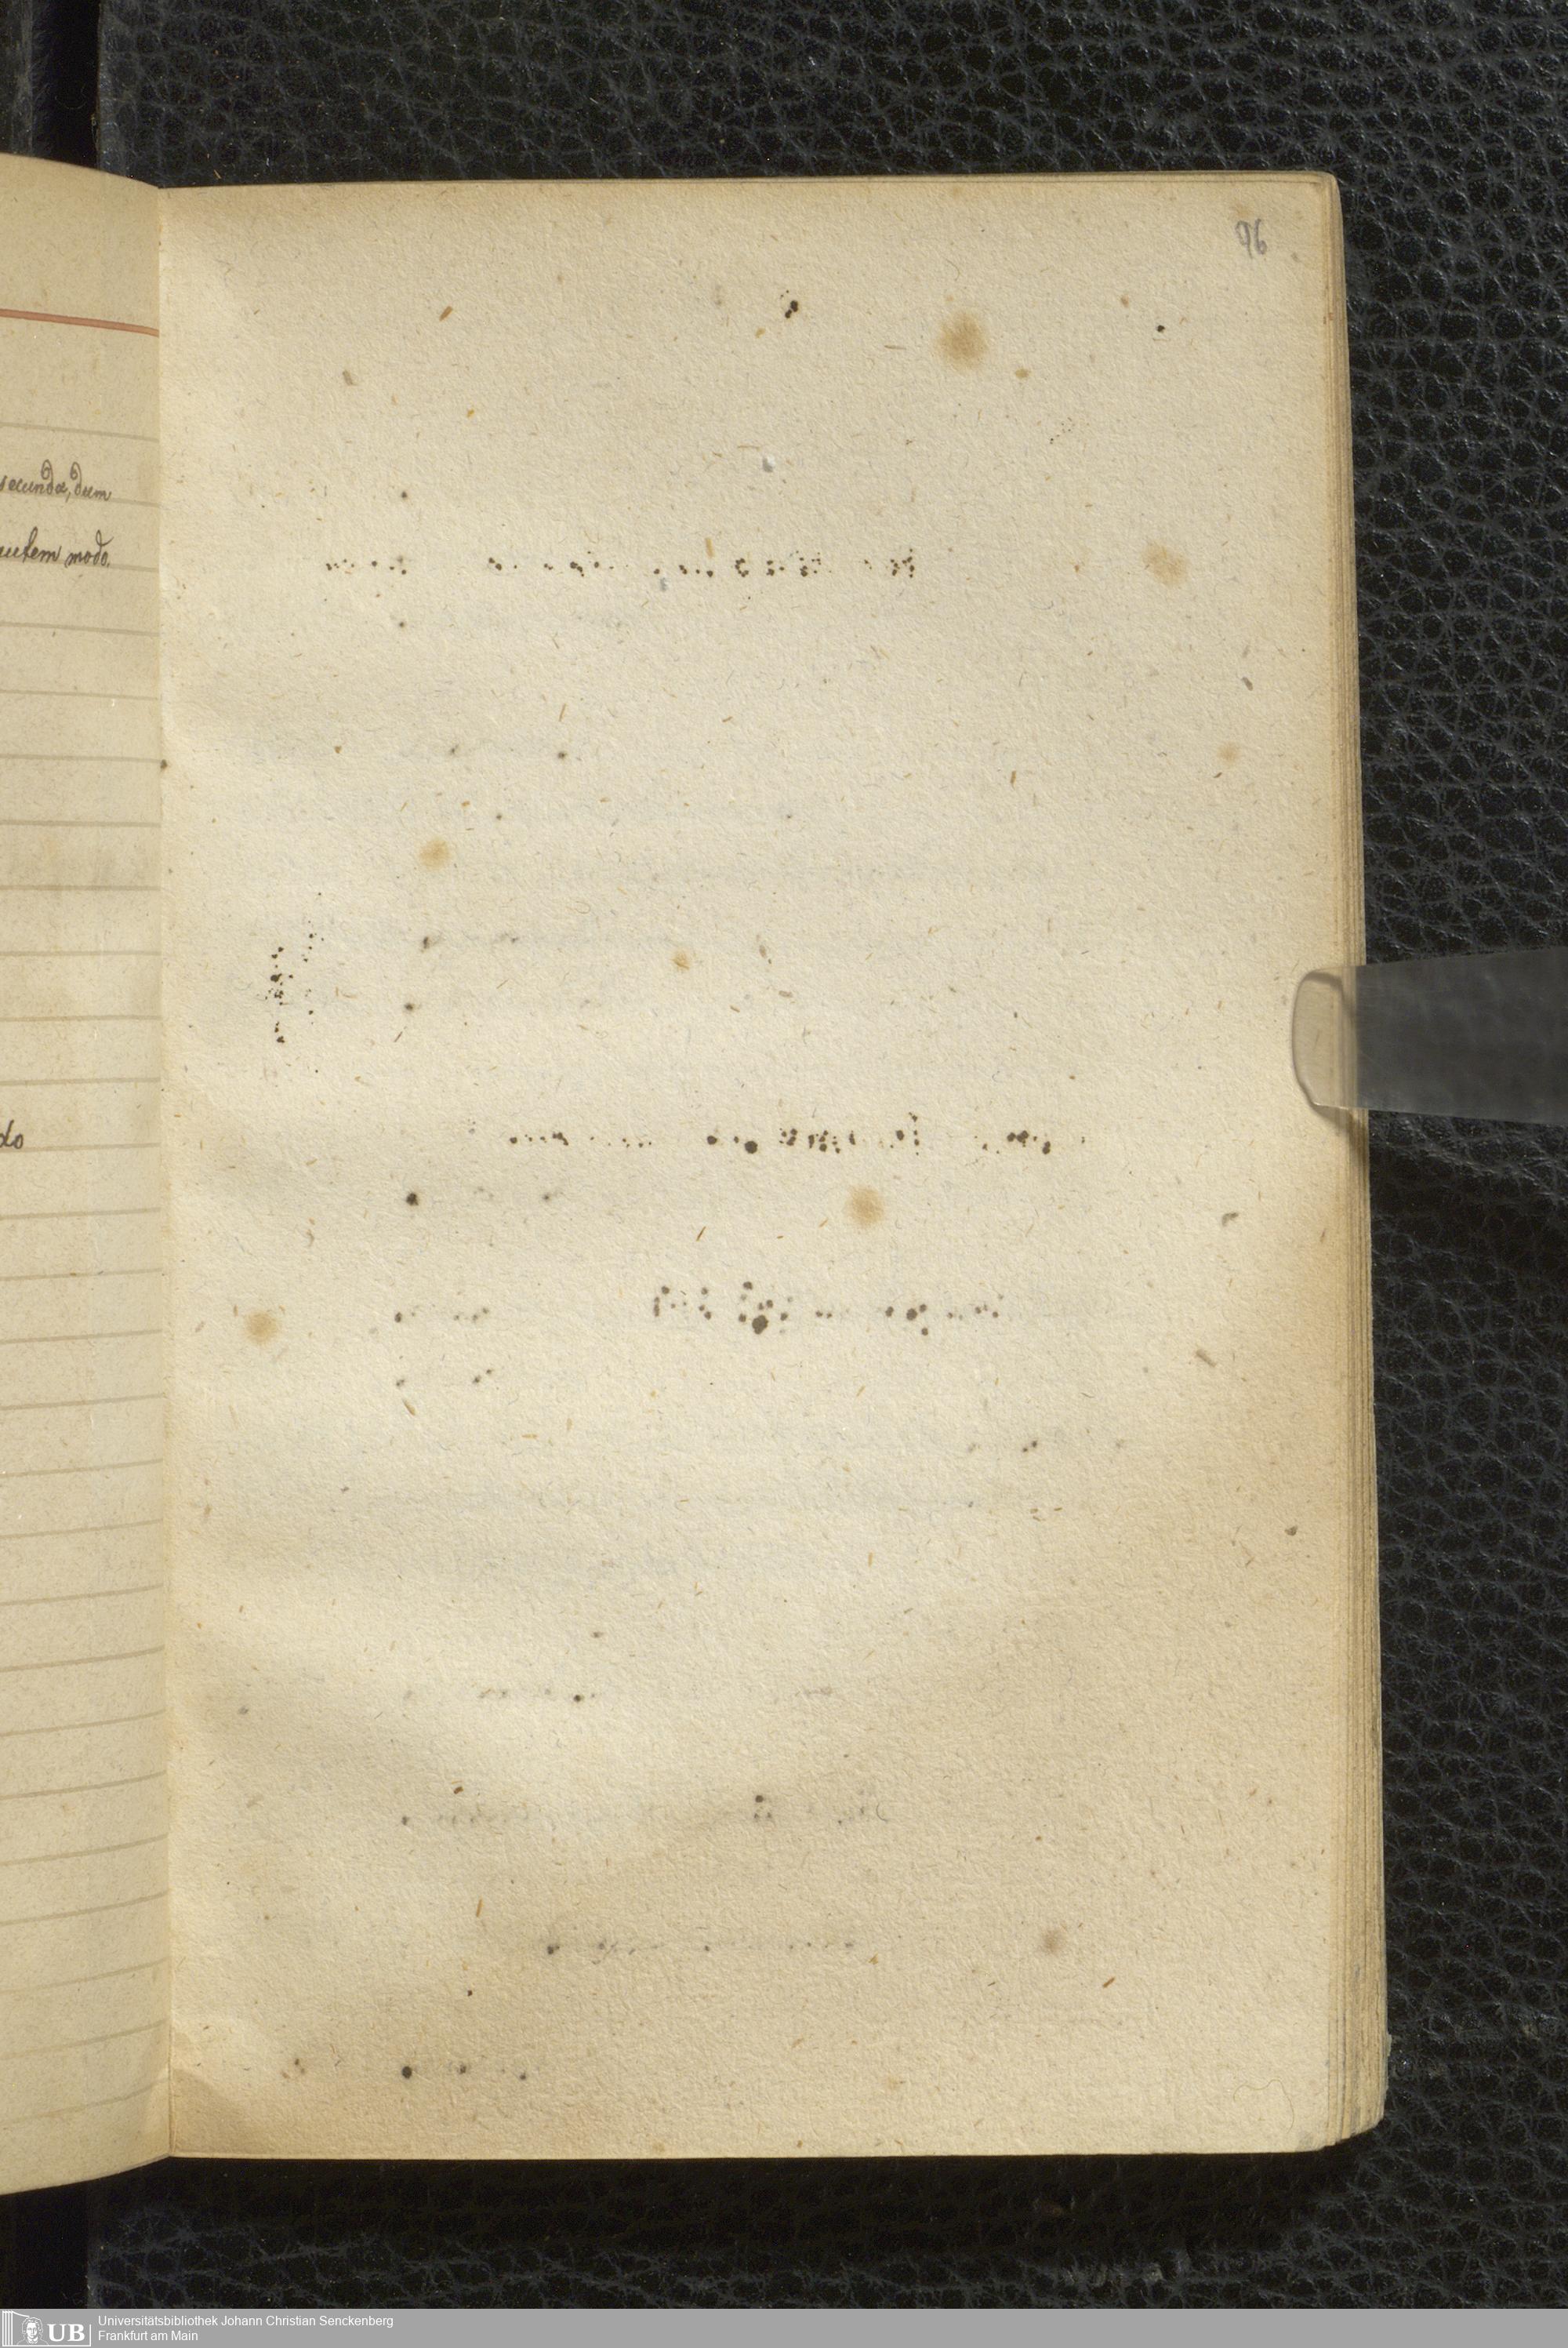 96
secunda, dum
autem modo.
do
UB
Universitätsbibliothek Johann Christian Senckenberg
Frankfurt am Main